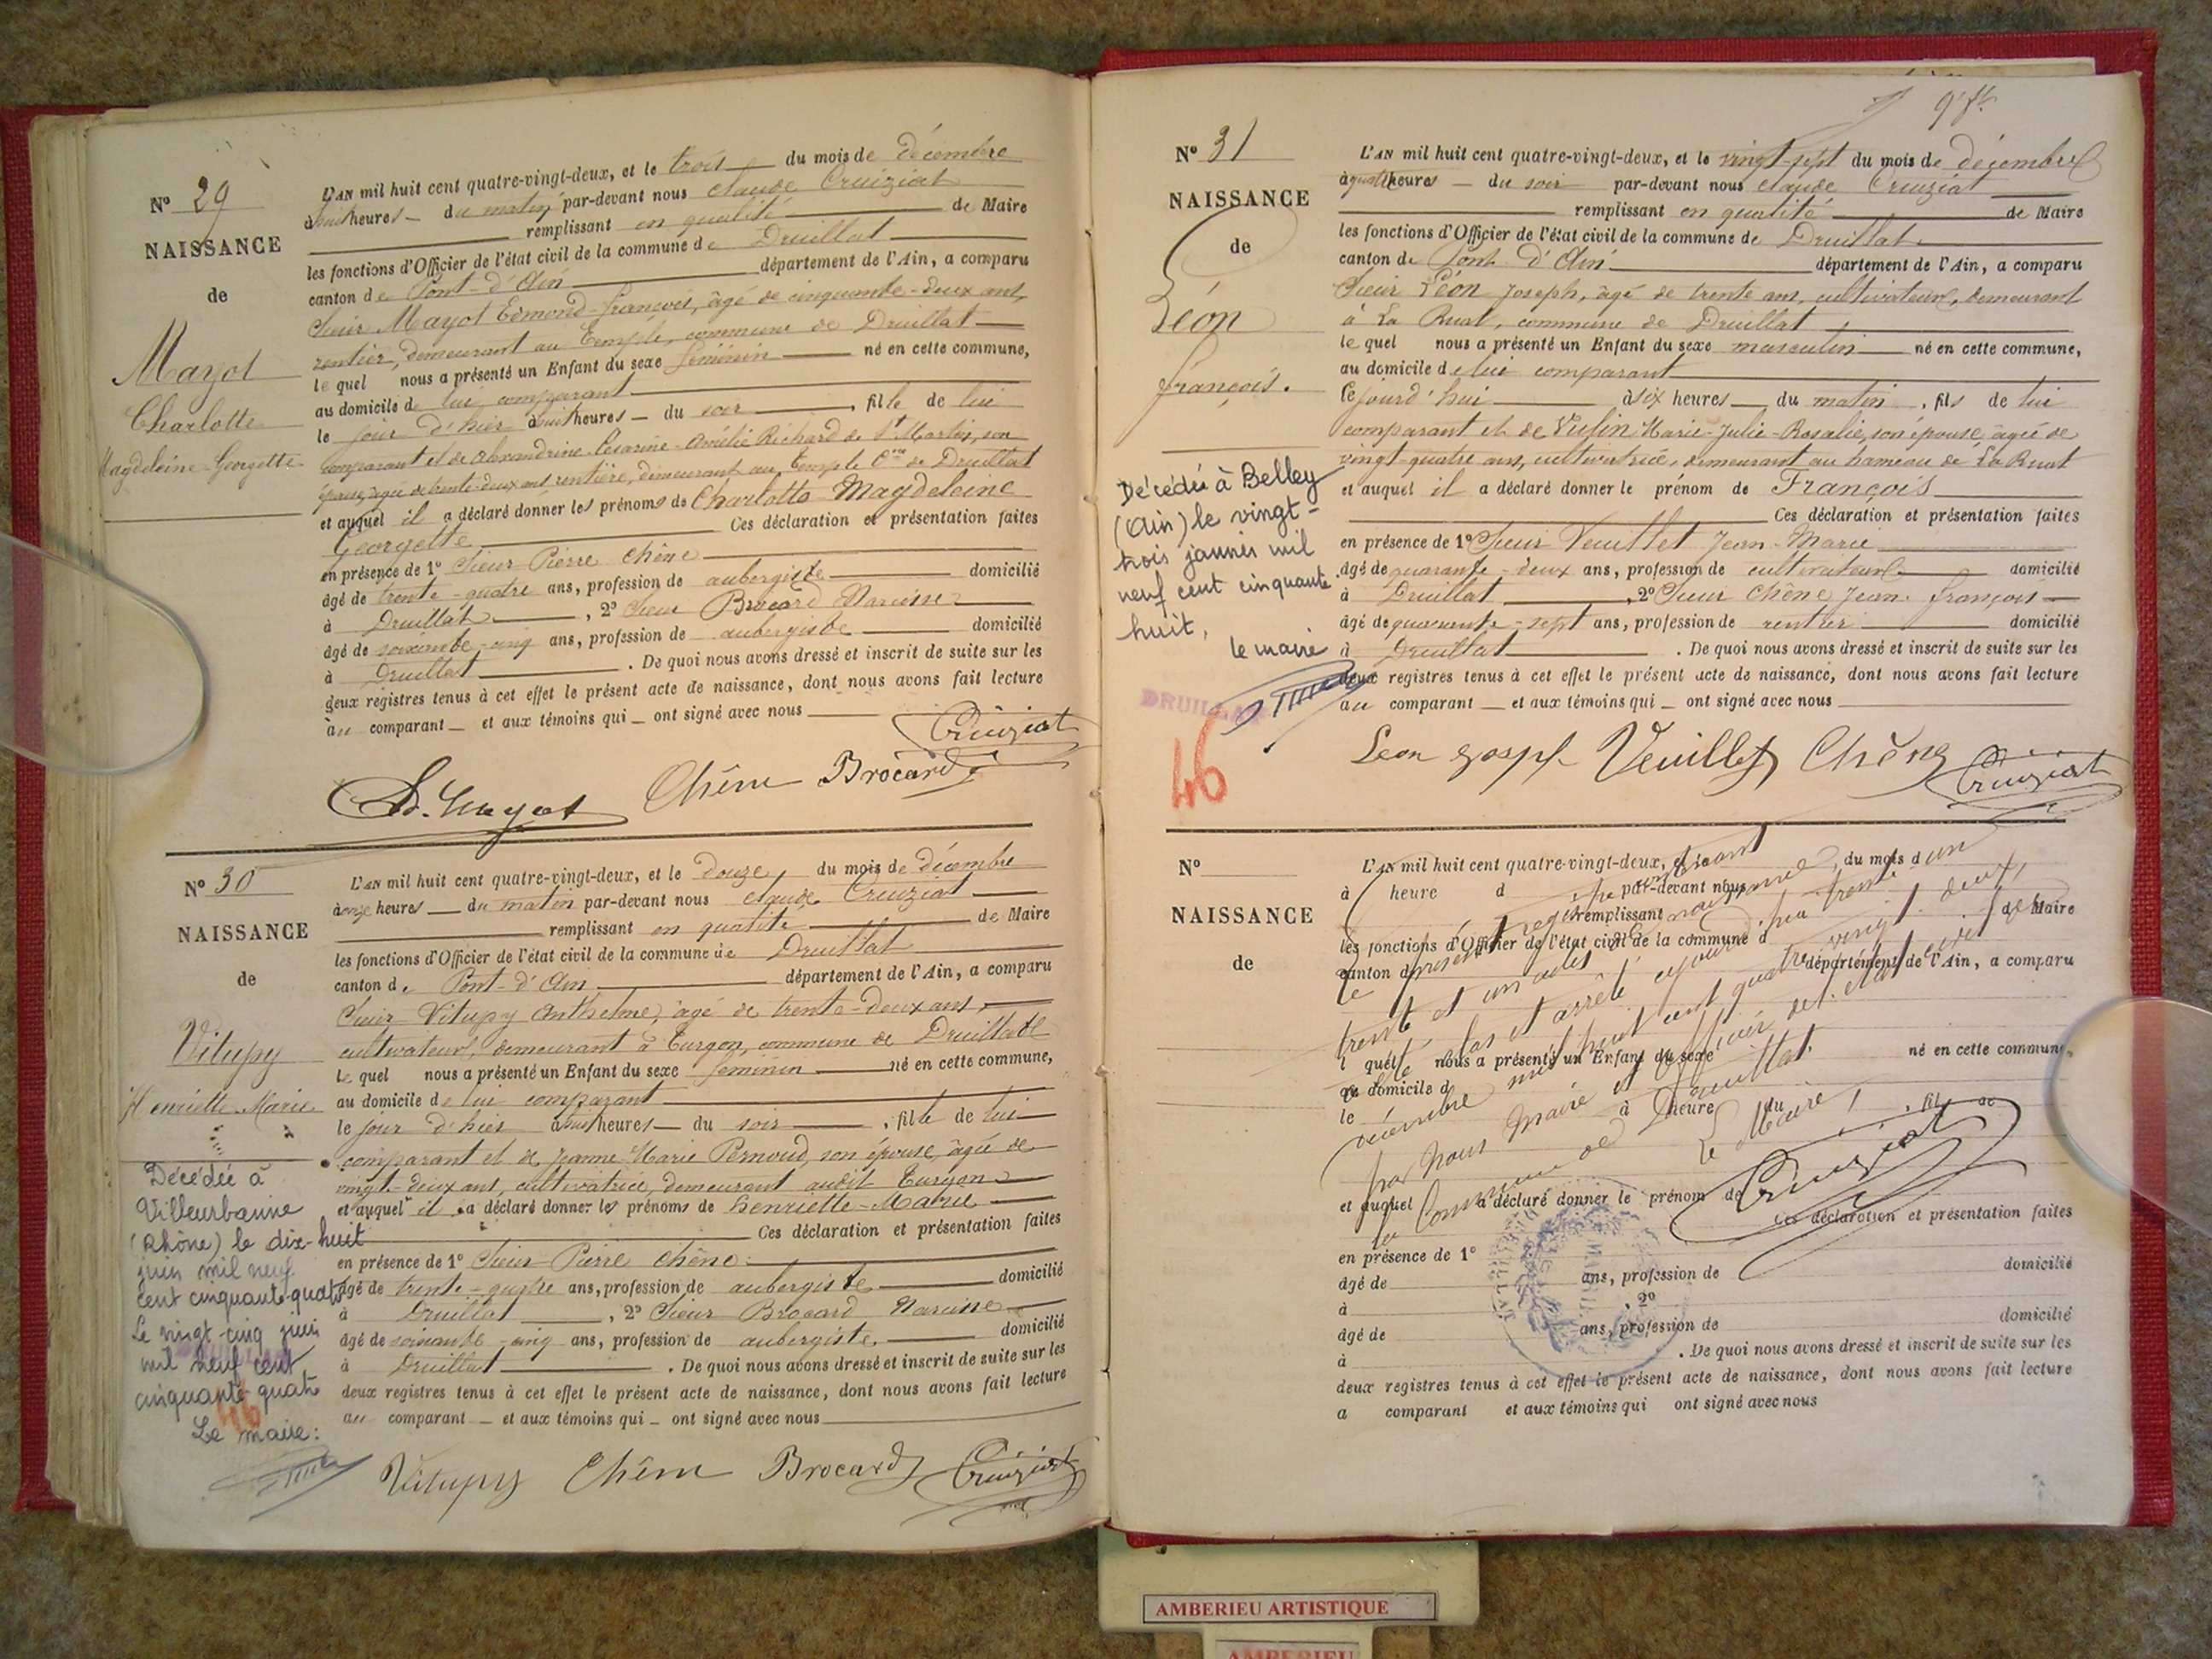 Nº 29
NAISSANCE
de
Mayot
Charlotte
Magdeleine-Georgette
L'AN mil huit cent quatre-vingt-deux, et le trois du mois de décembre
à heures du matin par-devant nous Claude Cruiziat
remplissant en qualité de Maire
les fonctions d'Officier de l'état civil de la commune de Druillat
canton de Pont-d'Ain département de l'Ain, a comparu
Sieur Mayot Edmond-François, âgé de cinquante-deux ans,
rentier, demeurant au Temple, commune de Druillat
le quel nous a présenté un Enfant du sexe féminin né en cette commune,
au domicile de lui comparant
le jour d'hier à huit heures du soir, fille de lui
comparant et de Alexandrine Césarine-Amélie Richard de St Martin, son
épouse, âgée de trente-deux ans rentière, demeurant au Temple Cne de Druillat
et auquel il a déclaré donner les prénoms de Charlotte Magdeleine
Georgette Ces déclaration et présentation faites
en présence de 1º Sieur Pierre Chêne
âgé de trente-quatre ans, profession de aubergiste domicilié
à Druillat, 2º Sieur Brocard Narcisse
âgé de soixante-cinq ans, profession de aubergiste domicilié
à Druillat. De quoi nous avons dressé et inscrit de suite sur les
deux registres tenus à cet effet le présent acte de naissance, dont nous avons fait lecture
au comparant et aux témoins qui ont signé avec nous
Cruiziat
Ed. Mayot Chêne Brocard
Nº 30
NAISSANCE
de
Vitupy
Henriette-Marie
Décédée à
Villeurbanne
(Rhône) le dix-huit
juin mil neuf
cent cinquante-quatre
Le vingt-cinq juin
mil neuf cent
cinquante quatre
46
Le maire:
L'AN mil huit cent quatre-vingt-deux, et le douze du mois de décembre
à onze heures du matin par-devant nous Claude Cruiziat
remplissant en qualité de Maire
les fonctions d'Officier de l'état civil de la commune de Druillat
canton de Pont-d'Ain département de l'Ain, a comparu
Sieur Vitupy Anthelme, âgé de trente-deux ans,
cultivateur, demeurant à Turgon, commune de Druillat
le quel nous a présenté un Enfant du sexe féminin né en cette commune,
au domicile de lui comparant
le jour d'hier à heures du soir, fille de lui
comparant et de Jeanne-Marie Pernoud, son épouse, âgée de
vingt-deux ans, cultivatrice, demeurant audit Turgon
et auquel il a déclaré donner les prénoms de Henriette-Marie
Ces déclaration et présentation faites
en présence de 1º Sieur Pierre Chêne
âgé de trente-quatre ans, profession de aubergiste domicilié
à Druillat, 2º Sieur Brocard Narcisse
âgé de soixante-cinq ans, profession de aubergiste domicilié
à Druillat. De quoi nous avons dressé et inscrit de suite sur les
deux registres tenus à cet effet le présent acte de naissance, dont nous avons fait lecture
au comparant et aux témoins qui ont signé avec nous
Vitupy Chêne Brocard Cruiziat
Nº 31
NAISSANCE
de
Léon
François.
Décédé à Belley
(Ain) le vingt-
trois janvier mil
neuf cent cinquante
huit,
le maire
DRUILLAT
46
L'AN mil huit cent quatre-vingt-deux, et le vingt-sept du mois de décembre
à quatre heures du soir par-devant nous Claude Cruiziat
remplissant en qualité de Maire
les fonctions d'Officier de l'état civil de la commune de Druillat
canton de Pont d'Ain département de l'Ain, a comparu
Sieur Léon Joseph, âgé de trente ans, cultivateur, demeurant
à La Ruat, commune de Druillat
le quel nous a présenté un Enfant du sexe masculin né en cette commune,
au domicile de lui comparant
cejourd'hui à six heures du matin, fils de lui
comparant et de Vufin Marie-Julie-Rosalie, son épouse âgée de
vingt-quatre ans, cultivatrice, demeurant au hameau de La Ruat
et auquel il a déclaré donner le prénom de François
Ces déclaration et présentation faites
en présence de 1º Sieur Veuillet Jean-Marie
âgé de quarante-deux ans, profession de cultivateur domicilié
à Druillat, 2º Sieur Chêne Jean François
âgé de quarante-sept ans, profession de rentier domicilié
à Druillat. De quoi nous avons dressé et inscrit de suite sur les
deux registres tenus à cet effet le présent acte de naissance, dont nous avons fait lecture
au comparant et aux témoins qui ont signé avec nous
Leon Joseph Veuillet Chêne
Cruiziat
Nº
NAISSANCE
de
L'AN mil huit cent quatre-vingt-deux, et le du mois d
à heure d par-devant nous
remplissant de Maire
les fonctions d'Officier de l'état civil de la commune d
canton d département de l'Ain, a comparu
l quel nous a présenté un Enfant du sexe né en cette commune,
au domicile d
le à heure du , fil de
et auquel a déclaré donner le prénom de
Ces déclaration et présentation faites
en présence de 1º
âgé de ans, profession de domicilié
à , 2º
âgé de ans, profession de domicilié
à . De quoi nous avons dressé et inscrit de suite sur les
deux registres tenus à cet effet le présent acte de naissance, dont nous avons fait lecture
a comparant et aux témoins qui ont signé avec nous
Le présent registre contenant
trente et un actes
a été clos et arrêté cejourd'hui trente un
décembre mil huit cent quatre vingt deux,
par nous Maire et Officier de l'état civil de
la Commune de Druillat.
Le Maire,
Cruiziat
AMBERIEU ARTISTIQUE
AMBERIEU